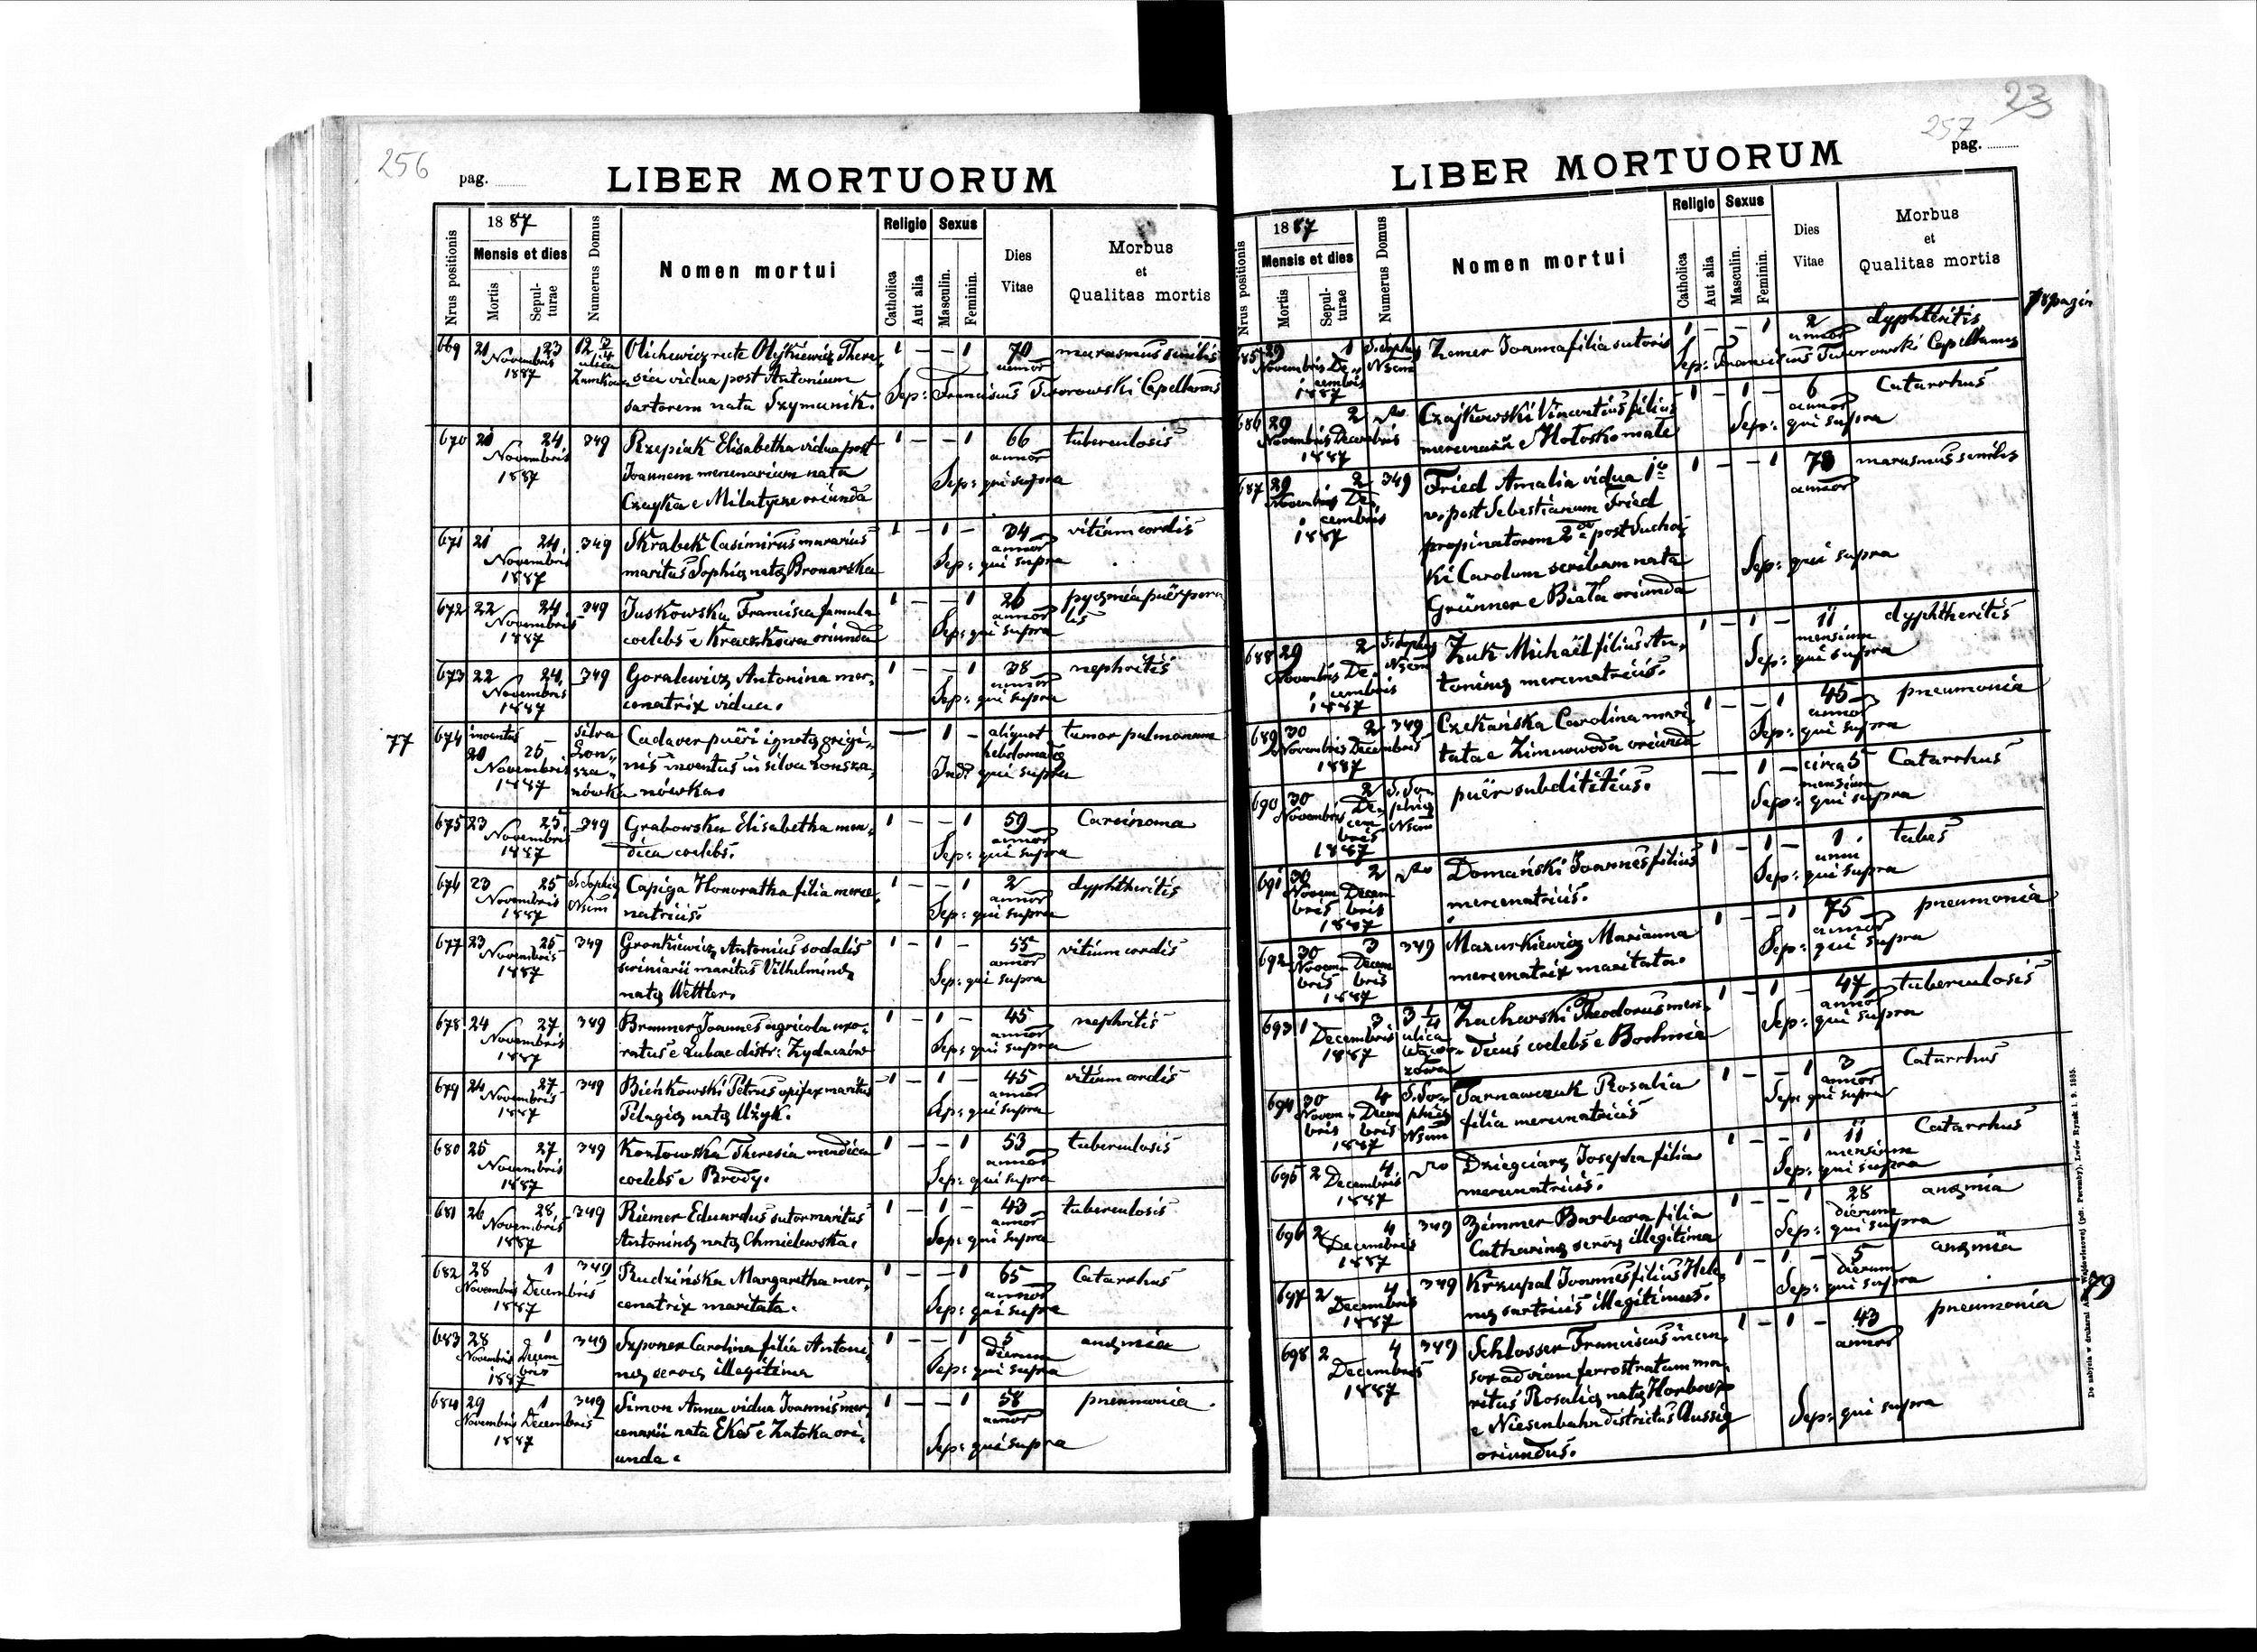 256
pag.
LIBER MORTUORUM
Nrus positionis
1887
Mensis et dies
Mortis
Sepul-
turae
Numerus Domus
Nomen mortui
Religio
Catholica
Aut alia
Sexus
Masculin.
Feminin.
Dies
Vitae
Morbus
et
Qualitas mortis
669 21 23 12 1 — — 1 70 marasmus senilis
Novembris
1887
sia vidua post Antonium
Sep: Franciscus Tworowski Capellanus
sartorem nata Szymanik.
670 21 24 349 Rzepiak Elisabetha vidua post 1 — — 1 66 tuberculosis
Novembris annor
1887 Joannem mercenarium nata
Sep: qui supra
Czayka e Milatycze oriunda
671 21 24 349 Skrabek Casimirus murarius 1 — 1 — 34 vitium cordis
Novembris annor
1887 maritus Sophię natę Bronarska Sep: qui supra
672 22 24 349 Juskowska Francisca famula 1 — — 1 26 pyęmia puërpera
Novembris annor lis
1887 coelebs e Kraczkowa oriunda Sep: qui supra
673 22 24 349 Goralewicz Antonina mer- 1 — — 1 38 nephritis
Novembris annor
1887 cenatrix vidua. Sep: qui supra
77
674 inventus silva Cadaver puëri ignotę origi- — 1 — aliquot tumor pulmonum
20 26 Lon-
Novembris sza- nis inventus in silva Lonsza- hebdomadę
1887 nówka nówka. Ind: qui supra
675 23 25 349 Grabowska Elisabetha men- 1 — — 1 59 Carcinoma
Novembris annor
1887 dica coelebs. Sep: qui supra
676 23 25 S. Sophię Capiga Honoratha filia merce- 1 — — 1 2 dyphtheritis
Novembris Nsum annor
1887 natricis. Sep: qui supra
677 23 25 349 Gronkiewicz Antonius sodalis 1 — 1 — 55 vitium cordis
Novembris annor
1887 scriniarii maritus Vilhelminę Sep: qui supra
natę Wettler.
678 24 27 349 Brunner Joannes agricola uxo- 1 — 1 — 45 nephritis
Novembris annor
1887 ratus e Lubae distr: Zydaczów Sep: qui supra
679 24 27 349 Bieńkowski Petrus opifex maritus 1 — 1 — 45 vitium cordis
Novembris annor
1887 Pelagię natę Użyk. Sep: qui supra
680 25 27 349 Kozłowska Theresia mendica 1 — — 1 53 tuberculosis
Novembris annor
1887 coelebs e Brody. Sep: qui supra
681 26 28 349 Riemer Eduardus sutor maritus 1 — 1 — 43 tuberculosis
Novembris annor
1887 Antoninę natę Chmielewska. Sep: qui supra
682 28 1 349 Rudzińska Margaretha mer- 1 — — 1 65 Catarrhus
Novembris Decembris annor
1887 cenatrix maritata. Sep: qui supra
683 28 1 349 Szponer Carolina filia Antoni- 1 — — 1 5 anęmia
Novembris Decem dierum
bris
1887 nę servę illegitima Sep: qui supra
684 29 1 349 Simon Anna vidua Joannis mer- 1 — — 1 58 pneumonia.
Novembris Decembris annor
1887 cenarii nata Ekes e Zatoka ori- Sep: qui supra
unda.
23
257
pag.
LIBER MORTUORUM
Nrus positionis
1887
Mensis et dies
Mortis
Sepul-
turae
Numerus Domus
Nomen mortui
Religio
Catholica
Aut alia
Sexus
Masculin.
Feminin.
Dies
Vitae
Morbus
et
Qualitas mortis
685 29 1 S. Sophię Zemer Joanna filia sutoris 1 — — 1 2 dyphtheritis
Novembris De- Nsum annor
cembris Sep: Franciscus Tworowski Capellanus
1887
686 29 2 Czajkowski Vincentius filius 1 — 1 — 6 Catarrhus
Novembris Decembris annor
1887 Sep: qui supra
687 29 2 349 Fried Amalia vidua 1 — — 1 78 marasmus senilis
Novembris De- annor
cembris v. post Sebestianum Fried
1887 propinatorem post Suchoc-
Sep: qui supra
ki Carolum scribam nata
Grünner e Biała oriunda
688 29 2 S. Sophię Żuk Michaël filius An- 1 — 1 — 11 dyphtheritis
Novembris De- Nsum mensium
cembris toninę mercenatricis. Sep: qui supra
1887
689 30 2 349 Czekańska Carolina mari- 1 — — 1 45 pneumonia
Novembris Decembris annor
1887 tata e Zimnowoda oriunda Sep: qui supra
690 30 2 S. So- puër subdititius. — 1 — circa 5 Catarrhus
Novembris De- phię mensium
cem Nsum Sep: qui supra
bris
1887
691 30 2 Domański Joannes filius 1 — 1 — 1 tabes
Novem Decem anni
bris bris mercenatricis. Sep: qui supra
1887
692 30 3 349 Mazurkiewicz Marianna 1 — — 1 75 pneumonia
Novem Decem annor
bris bris mercenatrix maritata. Sep: qui supra
1887
693 1 3 3 ¼ Zacharski Theodorus men- 1 — 1 — 47 tuberculosis
Decembris ulica annor
1887 dicus coelebs e Bochnia Sep: qui supra
694 30 4 S. So- Tarnawczuk Rosalia 1 — — 1 3 Catarrhus
Novem Decem phię annor
bris bris Nsum filia mercenatricis Sep: qui supra
1887
695 2 4 Dziegciarz Josepha filia 1 — — 1 11 Catarrhus
Decembris mensium
1887 mercenatricis. Sep: qui supra
696 2 4 349 Zimmer Barbara filia 1 — — 1 28 anęmia
Decembris dierum
1887 Catharinę servę illegitima Sep: qui supra
697 2 4 349 Krzupal Joannes filius Hele- 1 — 1 — 5 anęmia
Decembris dierum
1887 nę sartricis illegitimus. Sep: qui supra
79
698 2 4 349 Schlosser Franciscus incen- 1 — 1 — 43 pneumonia
Decembris annor
1887 sor ad viam ferrostratam ma-
ritus Rosalię natę
e Niesenbahn districtus Aussig Sep: qui supra
oriundus.